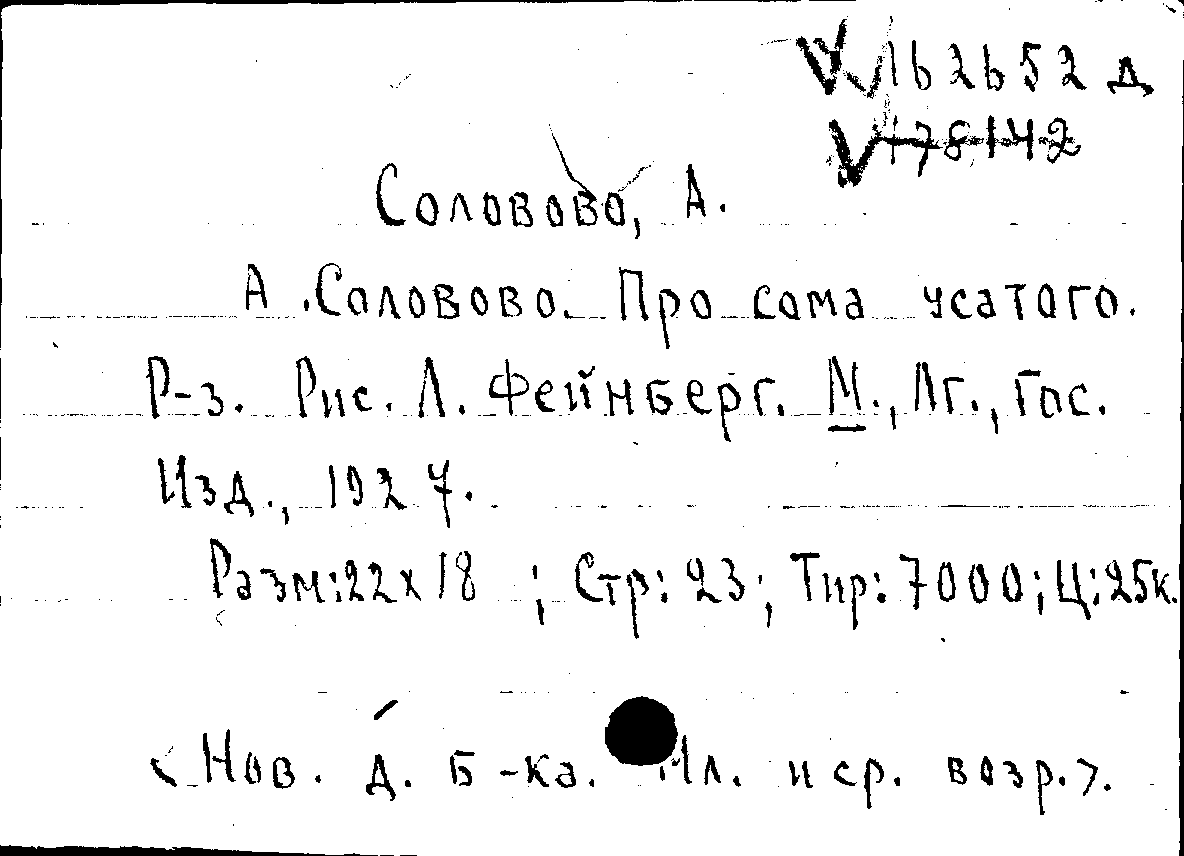 V 162652 д
V 178142
Соловово, А.
А. Соловово. Про сома усатого.
Р-з. Рис. Л. Фейнберг. М., Лг., Гос.
Изд., 1927.
Разм: 22x18 ; Стр: 23; Тир: 7000; Ц: 25к.
<Нов. д. Б-ка. Мл. и ср. возр.>.